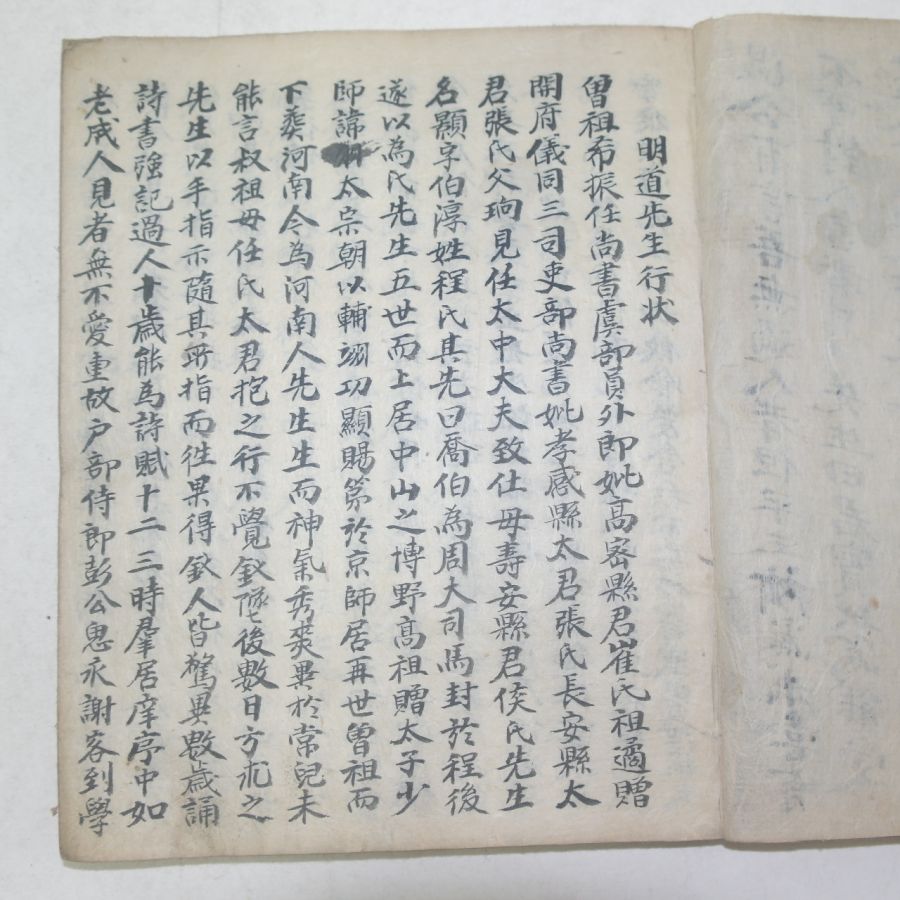 明道先生行状
曾祖希振任尚書虞部員外郎妣高密縣君崔氏祖遹贈
開府儀同三司吏部尚書妣孝感縣太君張氏長安縣太
君張氏父珦見任太中大夫致仕母壽安縣君侯氏先生
名顥字伯淳姓程氏其先曰喬伯為周大司馬封於程後
遂以為氏先生五世而上居中山之博野高祖贈太子少
師諱羽太宗朝以輔翊功顯賜第於京師居再世曾祖而
下葬河南今為河南人先生生而神氣秀爽異於常兒未
能言叔祖母任氏太君抱之行不覺釵墜後數日方求之
先生以手指示隨其所指而徃果得釵人皆驚異數歲誦
詩書強記過人十歲能為詩賦十二三時羣居庠序中如
老成人見者無不愛重故户部侍郎彭公思永謝客到學